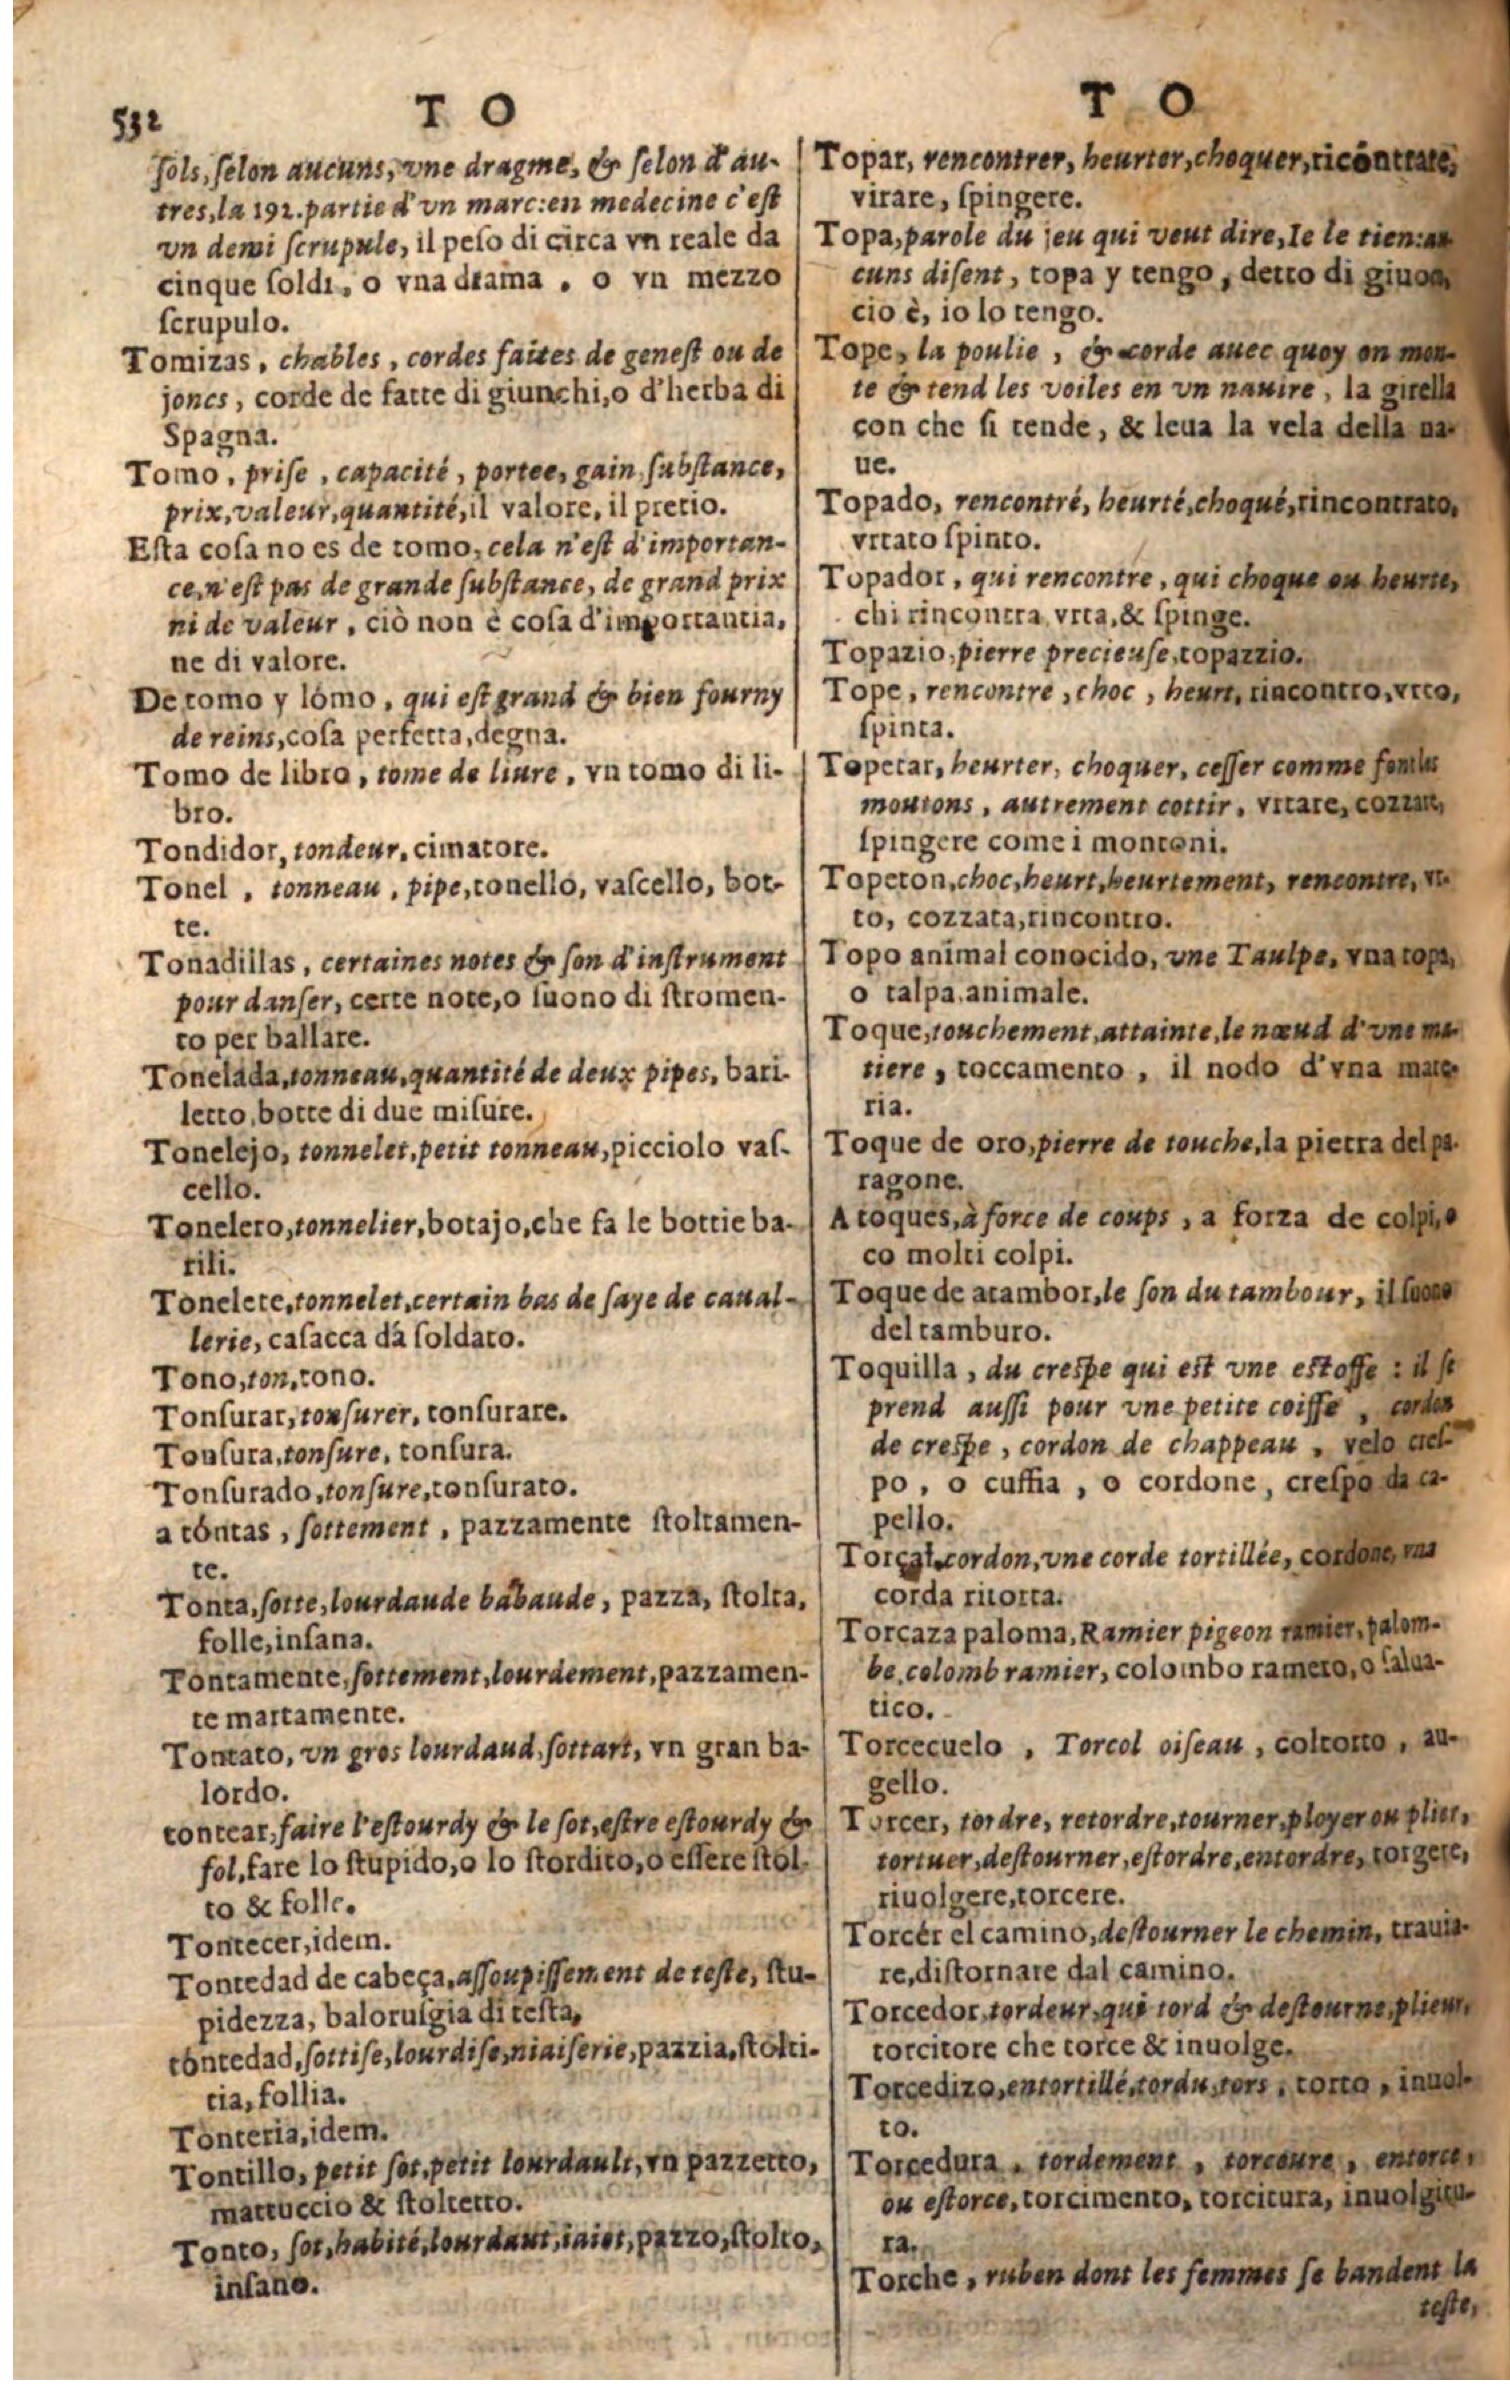 532
T O
ſols, ſelon aucuns, vne dragme, & ſelon d'au-
tres, la 192. partie d'vn marc: en medecine c'eſt
vn demi ſcrupule, il peſo di circa vn reale da
cinque ſoldi, o vna drama, o vn mezzo
ſcrupulo.
Tomizas, chables, cordes faites de geneſt ou de
joncs, corde de fatte di giunchi, o d'herba di
Spagna.
Tomo, priſe, capacité, portee, gain, ſubſtance,
prix, valeur, quantité, il valore, il pretio.
Eſta coſa no es de tomo, cela n'eſt d'importan-
ce, n'eſt pas de grande ſubſtance, de grand prix
ni de valeur, ciò non è coſa d'importantia,
ne di valore.
De tomo y lómo, qui eſt grand & bien fourny
de reins, coſa perfetta, degna.
Tomo de libro, tome de liure, vn tomo di li-
bro.
Tondidor, tondeur, cimatore.
Tonel, tonneau, pipe, tonello, vaſcello, bot-
te.
Tonadillas, certaines notes & ſon d'inſtrument
pour danſer, certe note, o ſuono di ſtromen-
to per ballare.
Tonelada, tonneau, quantité de deux pipes, bari-
letto, botte di due miſure.
Tonelejo, tonnelet, petit tonneau, picciolo vaſ-
cello.
Tonelero, tonnelier, botajo, che fa le bottie ba-
rili.
Tonelete, tonnelet, certain bas de ſaye de caual-
lerie, caſacca dá ſoldato.
Tono, ton, tono.
Tonſurar, tonſurer, tonſurare.
Tonſura, tonſure, tonſura.
Tonſurado, tonſure, tonſurato.
a tóntas, ſottement, pazzamente ſtoltamen-
te.
Tonta, ſotte, lourdaude babaude, pazza, ſtolta,
folle, inſana.
Tontamente, ſottement, lourdement, pazzamen-
te mattamente.
Tontato, vn gros lourdaud, ſottart, vn gran ba-
lordo.
tontear, faire l'eſtourdy & le ſot, eſtre eſtourdy &
fol, fare lo ſtupido, o lo ſtordito, o eſſere ſtol-
to & folle.
Tontecer, idem.
Tontedad de cabeça, aſſoupiſſement de teſte, ſtu-
pidezza, baloruſgia di teſta,
tóntedad, ſottiſe, lourdiſe, niaiſerie, pazzia, ſtolti-
tia, follia.
Tonteria, idem.
Tontillo, petit ſot, petit lourdault, vn pazzetto,
mattuccio & ſtoltetto.
Tonto, ſot, habité, lourdaut, iaiot, pazzo, ſtolto,
inſano.
T O
Topar, rencontrer, heurter, choquer, ricôntrare,
virare, ſpingere.
Topa, parole du jeu qui veut dire, Ie le tien: au-
cuns diſent, topa y tengo, detto di giuoco,
cio è, io lo tengo.
Tope, la poulie, & corde auec quoy on mon-
te & tend les voiles en vn nauire, la girella
con che ſi tende, & leua la vela della na-
ue.
Topado, rencontré, heurté, choqué, rincontrato,
vrtato ſpinto.
Topador, qui rencontre, qui choque ou heurte,
chi rincontra, vrta, & ſpinge.
Topazio, pierre precieuſe, topazzio.
Tope, rencontre, choc, heurt, rincontro, vrto,
ſpinta.
Topetar, heurter, choquer, ceſſer comme font les
moutons, autrement cottir, vrtare, cozzare,
ſpingere come i montoni.
Topeton, choc, heurt, heurtement, rencontre, vr-
to, cozzata, rincontro.
Topo animal conocido, vne Taulpe, vna topa,
o talpa, animale.
Toque, touchement, attainte, le nœud d'vne ma-
tiere, toccamento, il nodo d'vna mate-
ria.
Toque de oro, pierre de touche, la pietra del pa-
ragone.
A toques, à force de coups, a forza de colpi, o
co molti colpi.
Toque de atambor, le ſon du tambour, il ſuono
del tamburo.
Toquilla, du creſpe qui eſt vne eſtoffe: il ſe
prend auſſi pour vne petite coiffe, cordon
de creſpe, cordon de chappeau, velo creſ-
po, o cuffia, o cordone, creſpo da ca-
pello.
Torçal, cordon, vne corde tortillée, cordone, vna
corda ritorta.
Torcaza paloma, Ramier pigeon ramier, palom-
be, colomb ramier, colombo ramero, o ſalua-
tico.
Torcecuelo, Torcol oiſeau, coltorto, au-
gello.
Torcer, tordre, retordre, tourner, ployer ou plier,
tortuer, deſtourner, eſtordre, entordre, torgere,
riuolgere, torcere.
Torcér el camino, deſtourner le chemin, trauia-
re, diſtornare dal camino.
Torcedor, tordeur, qui tord & deſtourne, plieur,
torcitore che torce & inuolge.
Torcedizo, entortillé, tordu, tors, torto, inuol-
to.
Torcedura, tordement, torceure, entorce,
ou eſtorce, torcimento, torcitura, inuolgitu-
ra.
Torche, ruben dont les femmes ſe bandent la
teſte,